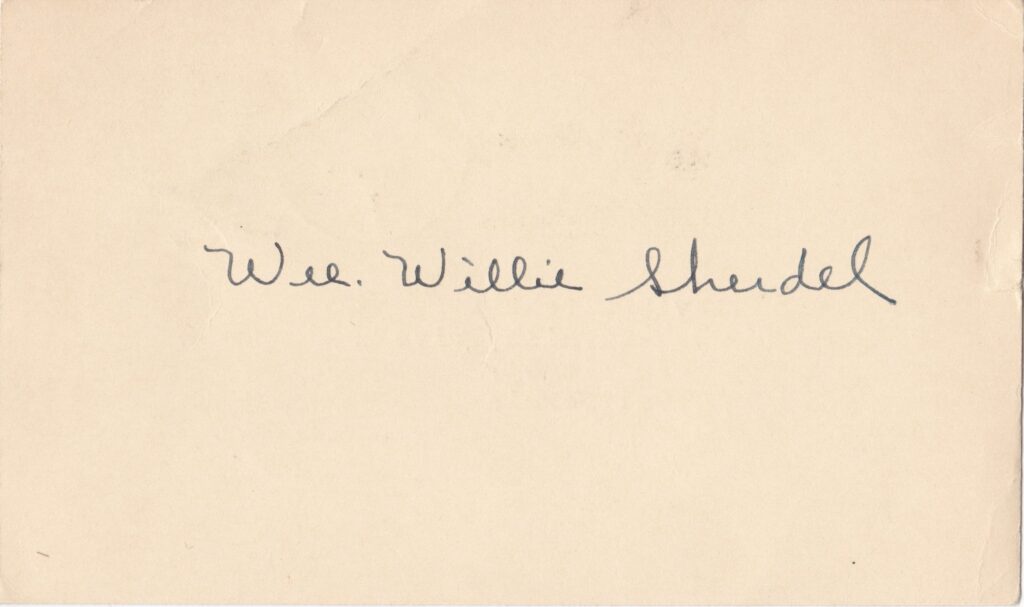 Wee. Willie Sherdel